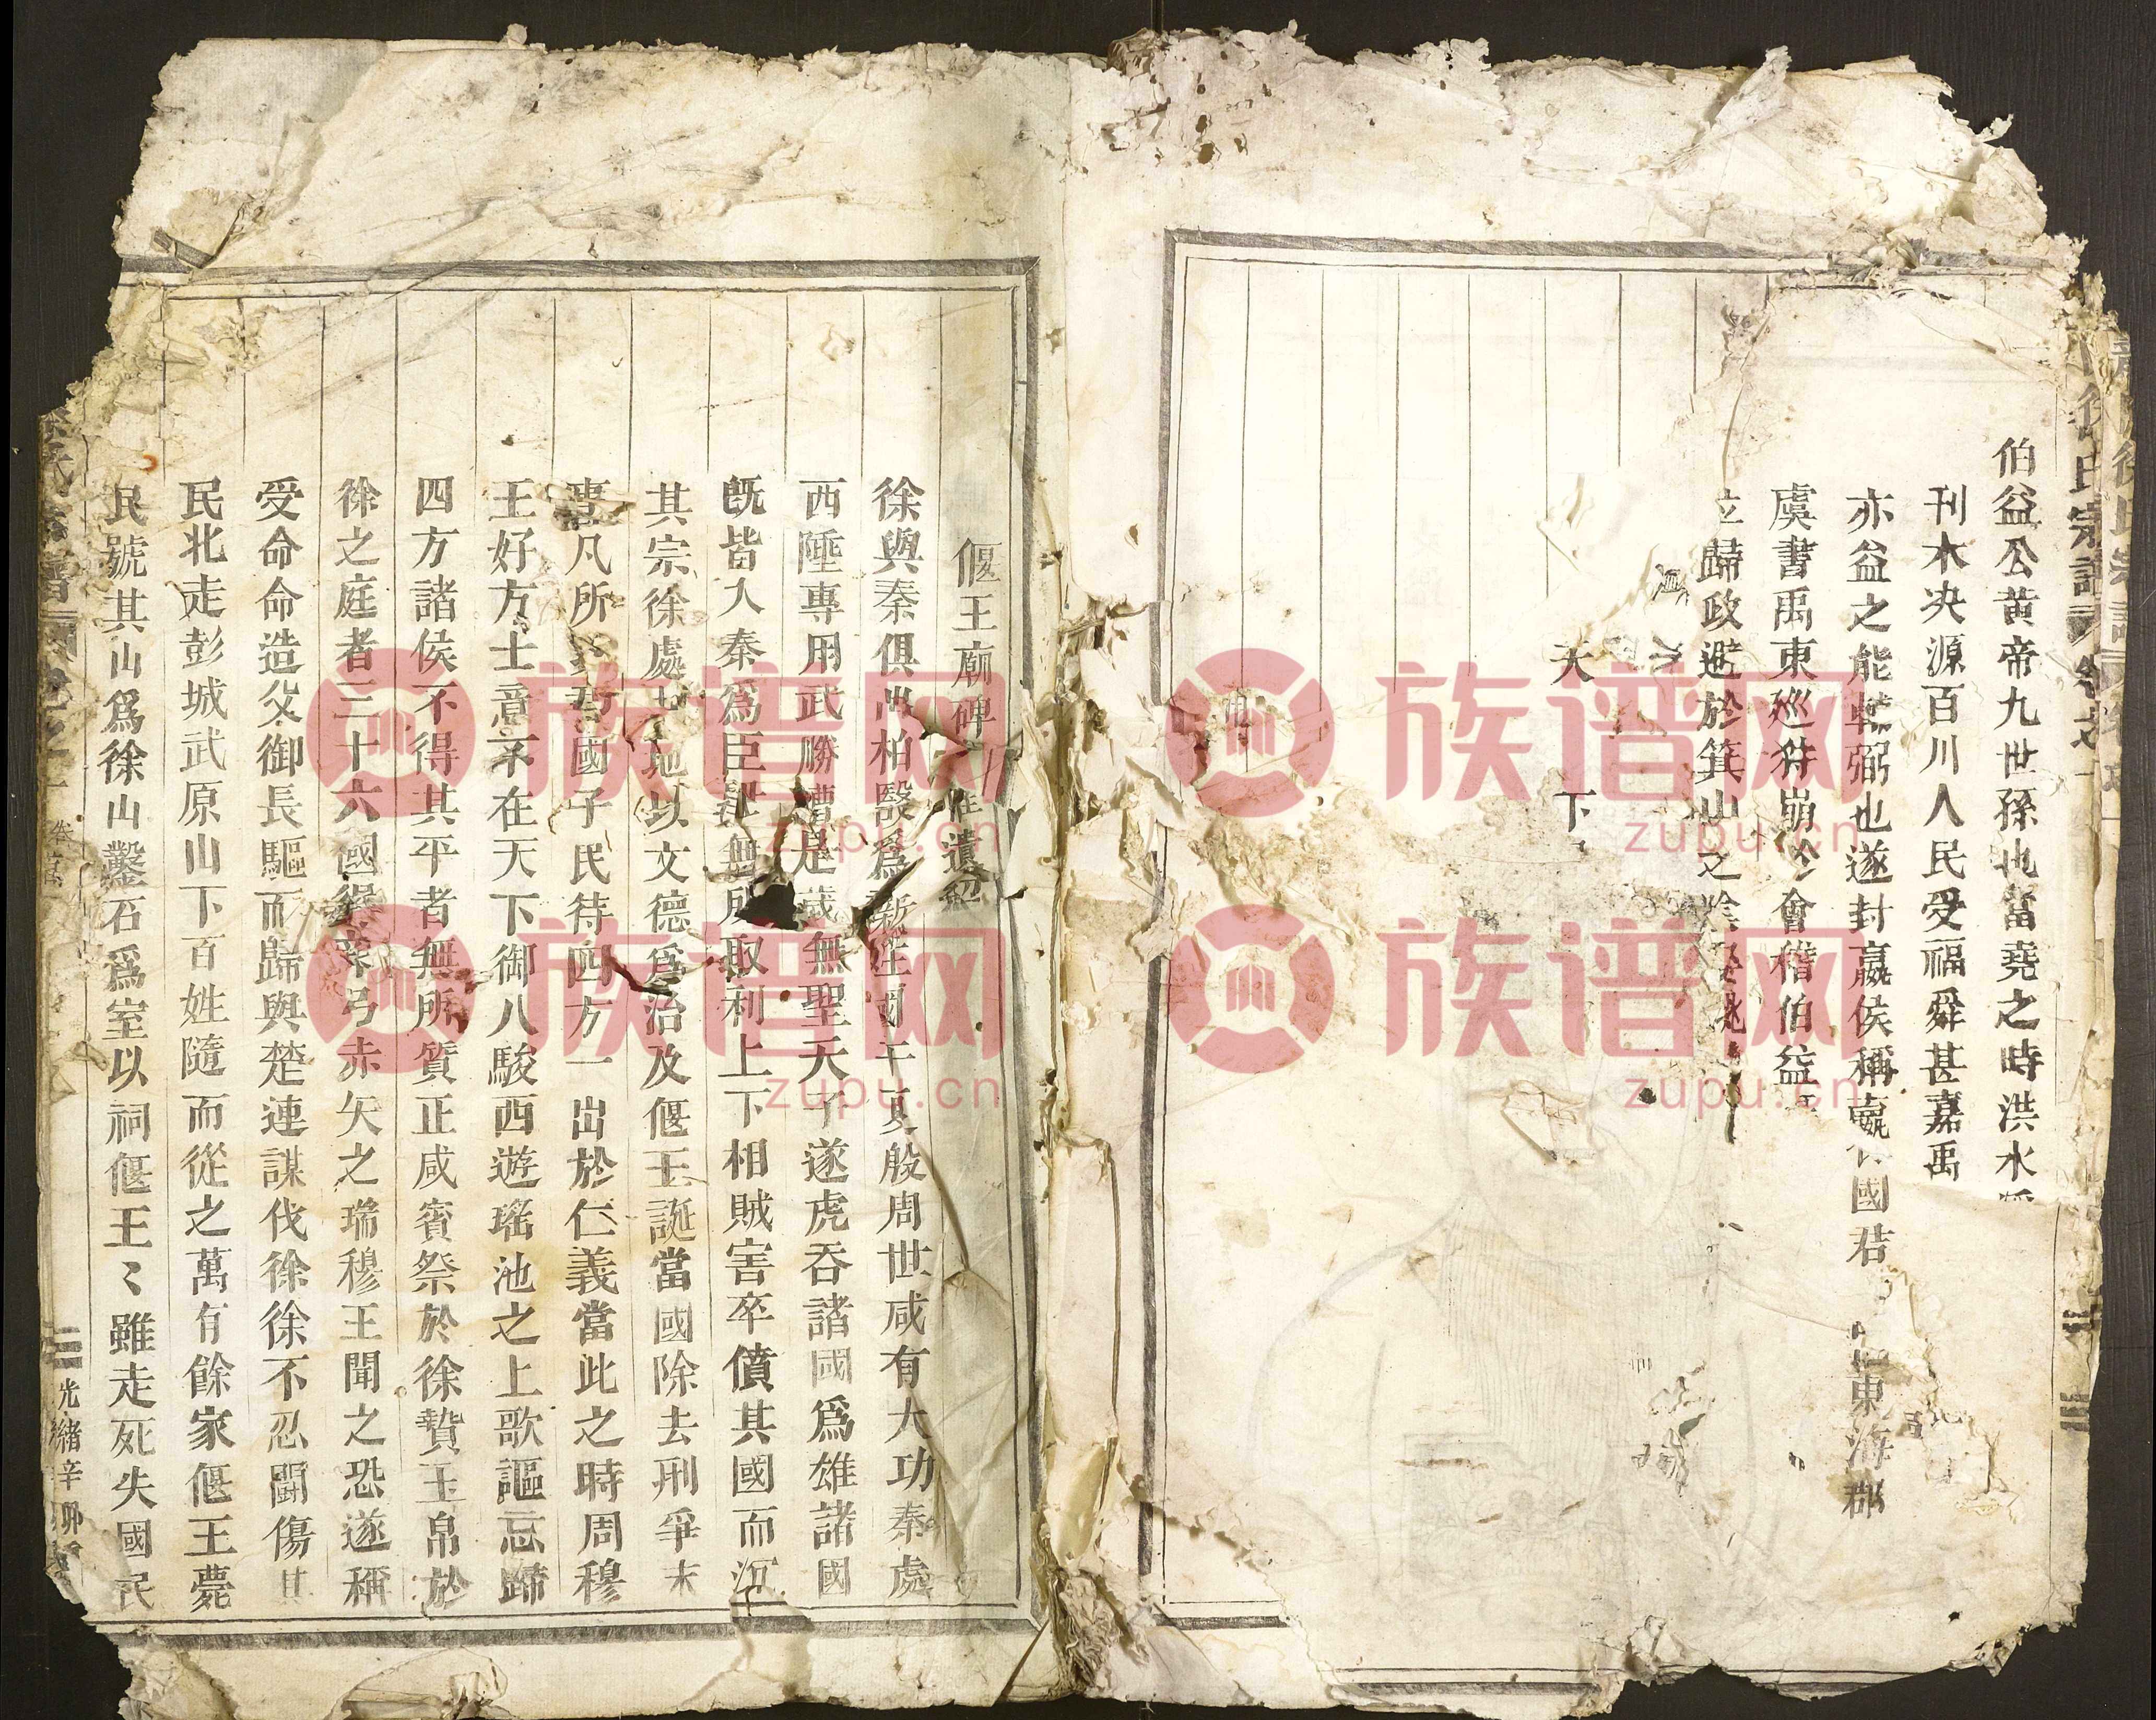 徐氏宗譜 卷之一
伯益公黄帝九世孫也當堯之時洪水
刊木決源百川人民受福舜甚嘉禹
亦益之能 弼也遂封嬴侯稱嬴 國君 東海郡
虞書禹東巡狩崩於會稽伯益
立歸政避於箕山之陰
天 下
偃王廟碑 遺
徐與秦俱出柏翳爲 國于夏殷周世咸有大功秦處
西陲專用武勝遭 歲無聖天子遂虎吞諸國爲雄諸國
既皆入秦爲臣 無所取利上下相賊害卒僨其國而沉
其宗徐處 地以文德爲治及偃王誕當國除去刑爭末
事凡所 君國子民待四方一出於仁義當此之時周穆
王好方士意不在天下御八駿西遊瑤池之上歌謳忘歸
四方諸侯不得其平者無所質正咸賓祭於徐贄玉帛於
徐之庭者三十六國得朱弓赤矢之瑞穆王聞之恐遂稱
受命命造父御長驅而歸與楚連謀伐徐徐不忍鬪傷其
民北走彭城武原山下百姓隨而從之萬有餘家偃王薨
民號其山爲徐山鑿石爲室以祠偃王〻雖走死失國民
徐氏宗譜 卷之一 光緒辛卯
族谱网
zupu.cn
族谱网
zupu.cn
族谱网
zupu.cn
族谱网
zupu.cn